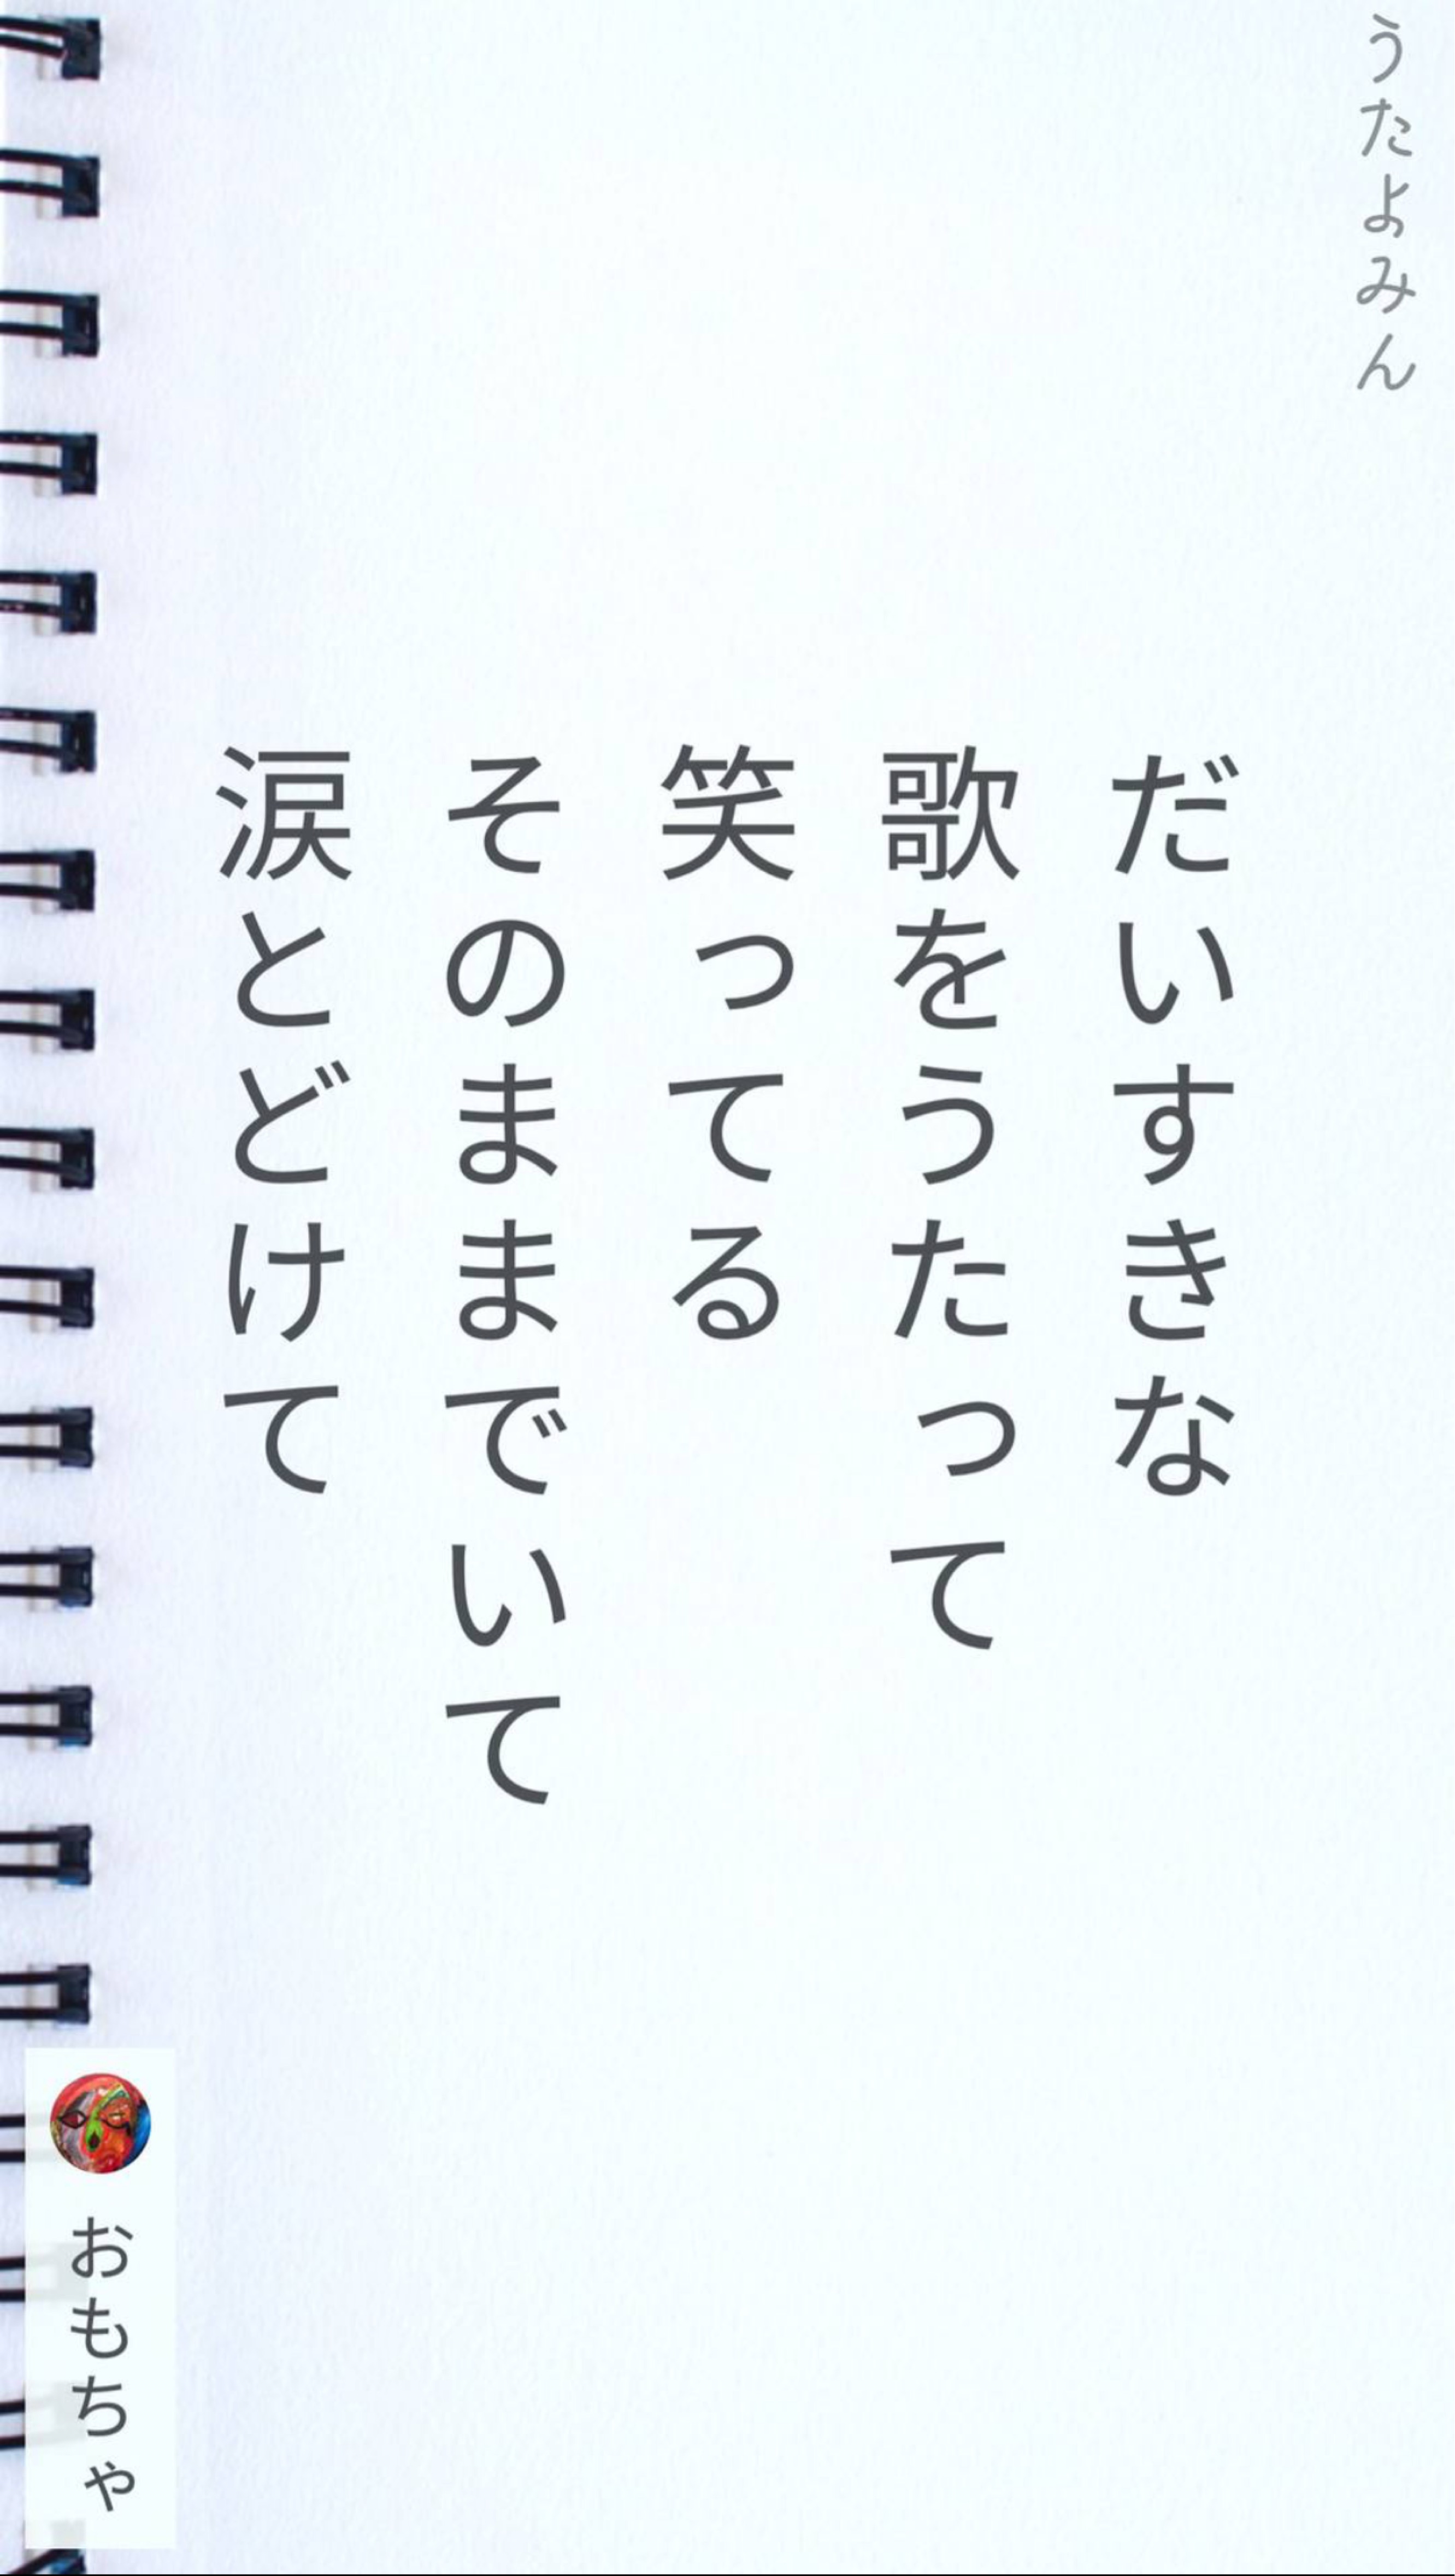 うたよみん
だいすきな
歌をうたって
笑ってる
そのままでいて
涙とどけて
おもちゃ